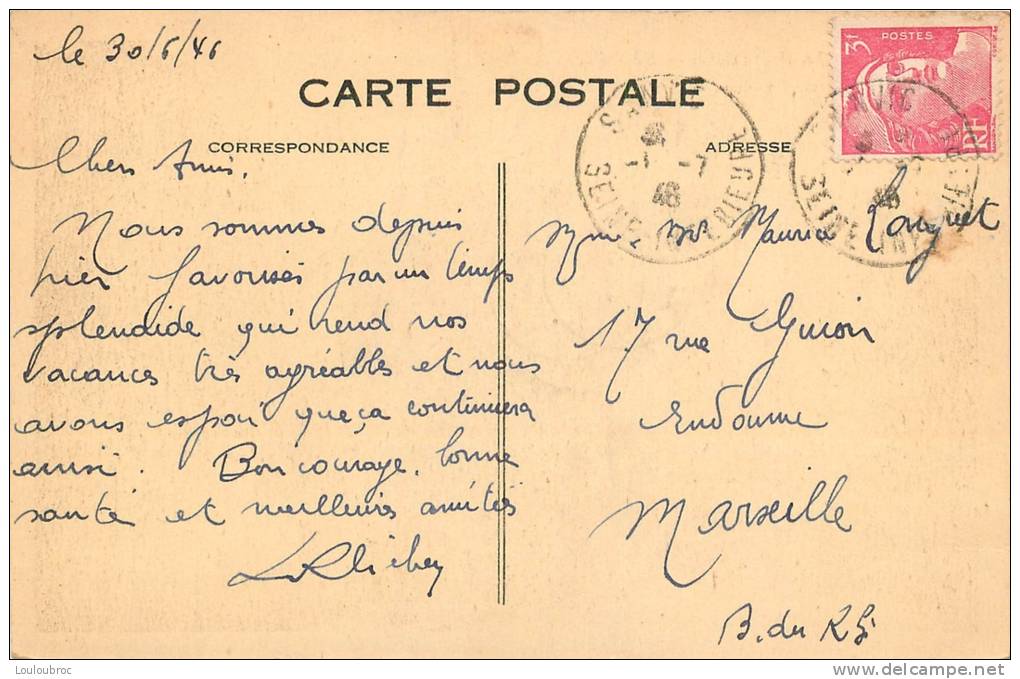 le 30/6/46
CARTE POSTALE
CORRESPONDANCE
ADRESSE
3f POSTES
RF
SANVIC
1-7
46
SEINE INFERIEURE
SANVIC
46
SEINE INFERIEURE
Chers Amis,
Nous sommes depuis
hier favorisés par un temps
splendide qui rend nos
vacances très agréables et nous
avons espoir que ça continuera
ainsi. Bon courage, bonne
santé et meilleures amitiés
Mme Mr Maurice
17 rue Guion
Endoume
Marseille
B. du R
Louloubroc
http://www.delcampe.net